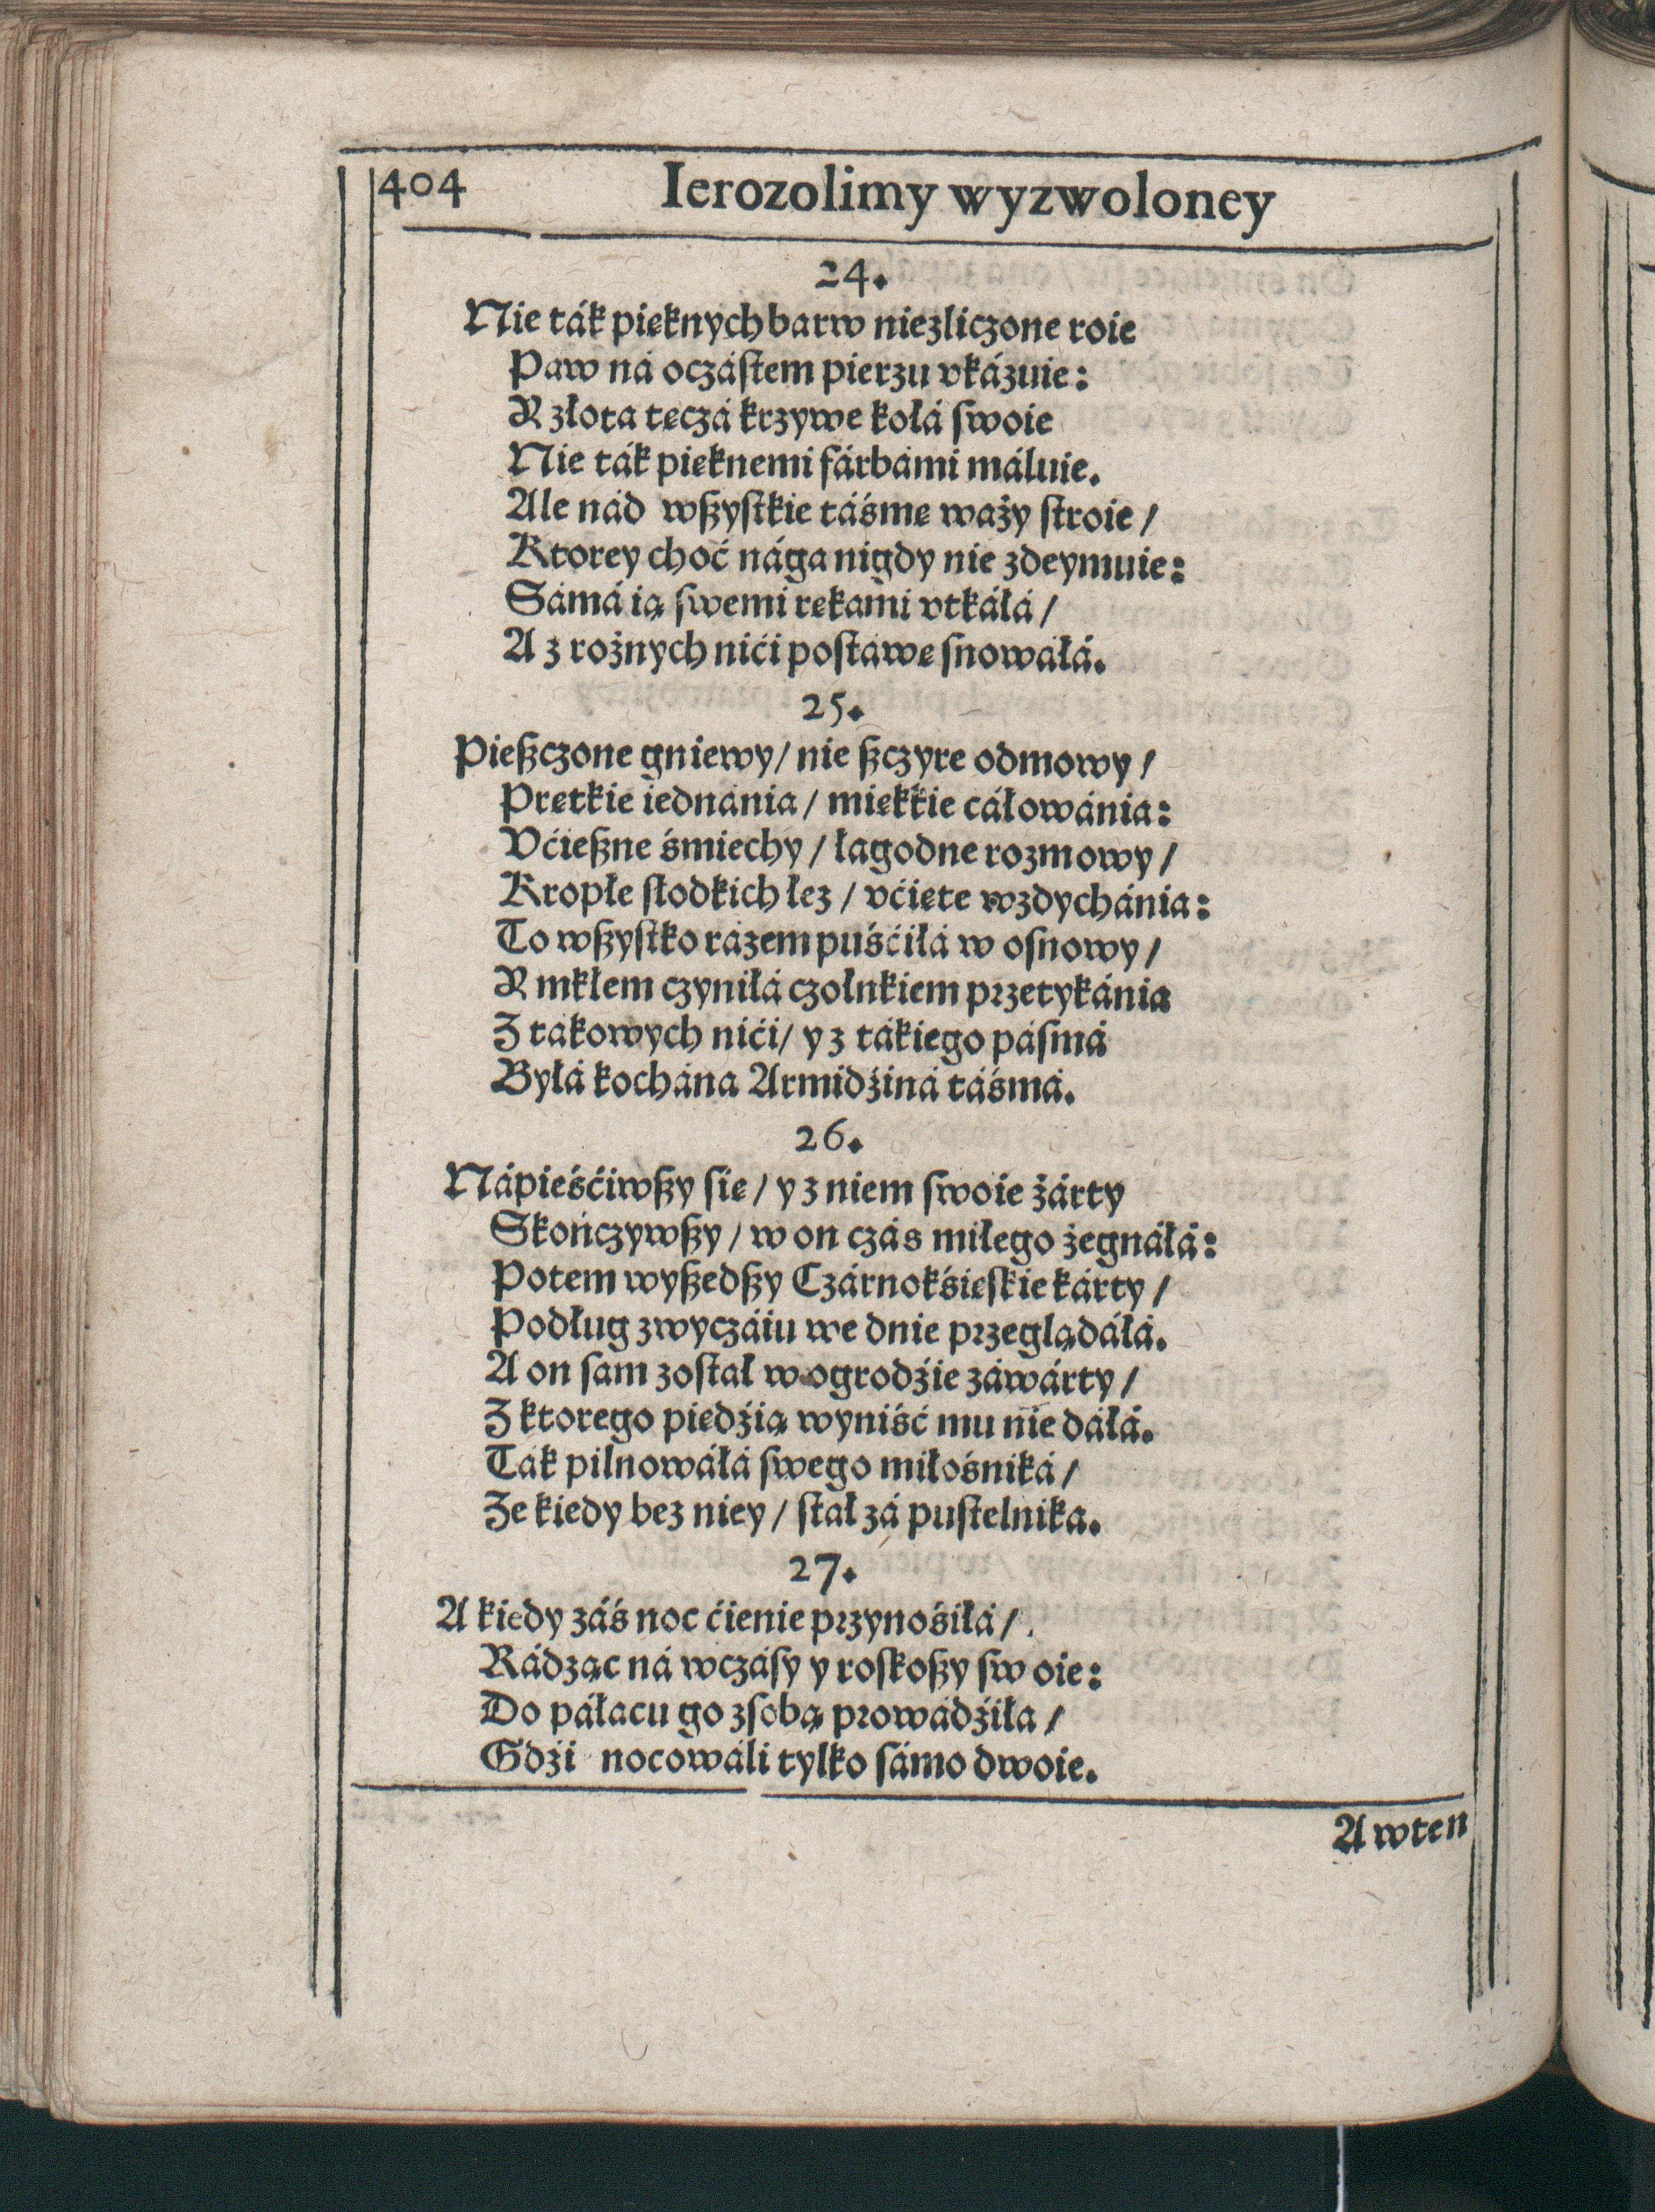 404 Ierozolimy wyzwoloney
24.
Nie ták pięknych barw niezliczone roie
Paw ná oczáſtem pierzu vkázuie:
Y złota tęczá krzywe kołá ſwoie
Nie ták pięknemi fárbámi máluie.
Ale nád wßyſtkie táśmę waży ſtroie/
Ktorey choć nága nigdy nie zdeymuie:
Sámá ią ſwemi rękami vtkáłá/
A z rożnych nići poſtáwę ſnowáłá.
25.
Pießczone gniewy/ nie ßczyre odmowy/
Prętkie iednánia/ miękkie cáłowánia:
Vćießne śmiechy/ łagodne rozmowy/
Krople ſłodkich łez/ vćięte wzdychánia:
To wßyſtko rázem puśćiłá w oſnowy/
Y mkłem czyniłá czołnkiem przetykánia
Z takowych nići/ y z tákiego páſmá
Byłá kochána Armidźiná táśmá.
26.
Nápieśćiwßy ſię/ y z niem ſwoie żárty
Skończywßy/ w on czás miłego żegnáłá:
Potem wyßedßy Czárnokśięſkie kárty/
Podług zwyczáiu we dnie przeglądáłá.
A on ſam został w ogrodźie záwárty/
Z ktorego piędźią wyniść mu nie dáłá.
Ták pilnowáłá ſwego miłośniká/
Ze kiedy bez niey/ ſtał zá puſtelnika.
27.
A kiedy záś noc ćienie przynośiłá/
Rádząc ná wczáſy y roſkoßy ſw oie:
Do páłacu go zſobą prowádźiłá/
Gdźi nocowáli tylko ſámo dwoie.
A wten